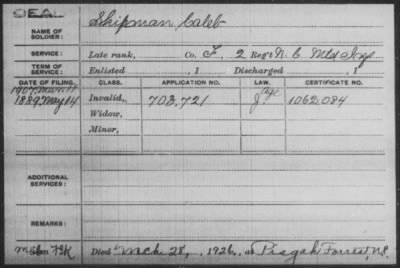 DEAL
NAME OF SOLDIER: Shipman, Caleb
SERVICE: Late rank, Co. F, 2 Reg't N. C. Mtd Inf
TERM OF SERVICE: Enlisted , 1 Discharged , 1
DATE OF FILING. CLASS. APPLICATION NO. LAW. CERTIFICATE NO.
1907 March 11
1889 May 14 Invalid, 703,721 Age 1062,084
Widow,
Minor,
ADDITIONAL SERVICES:
REMARKS:
Died Mch. 28, , 1926, at Pisgah Forrest, N.C.